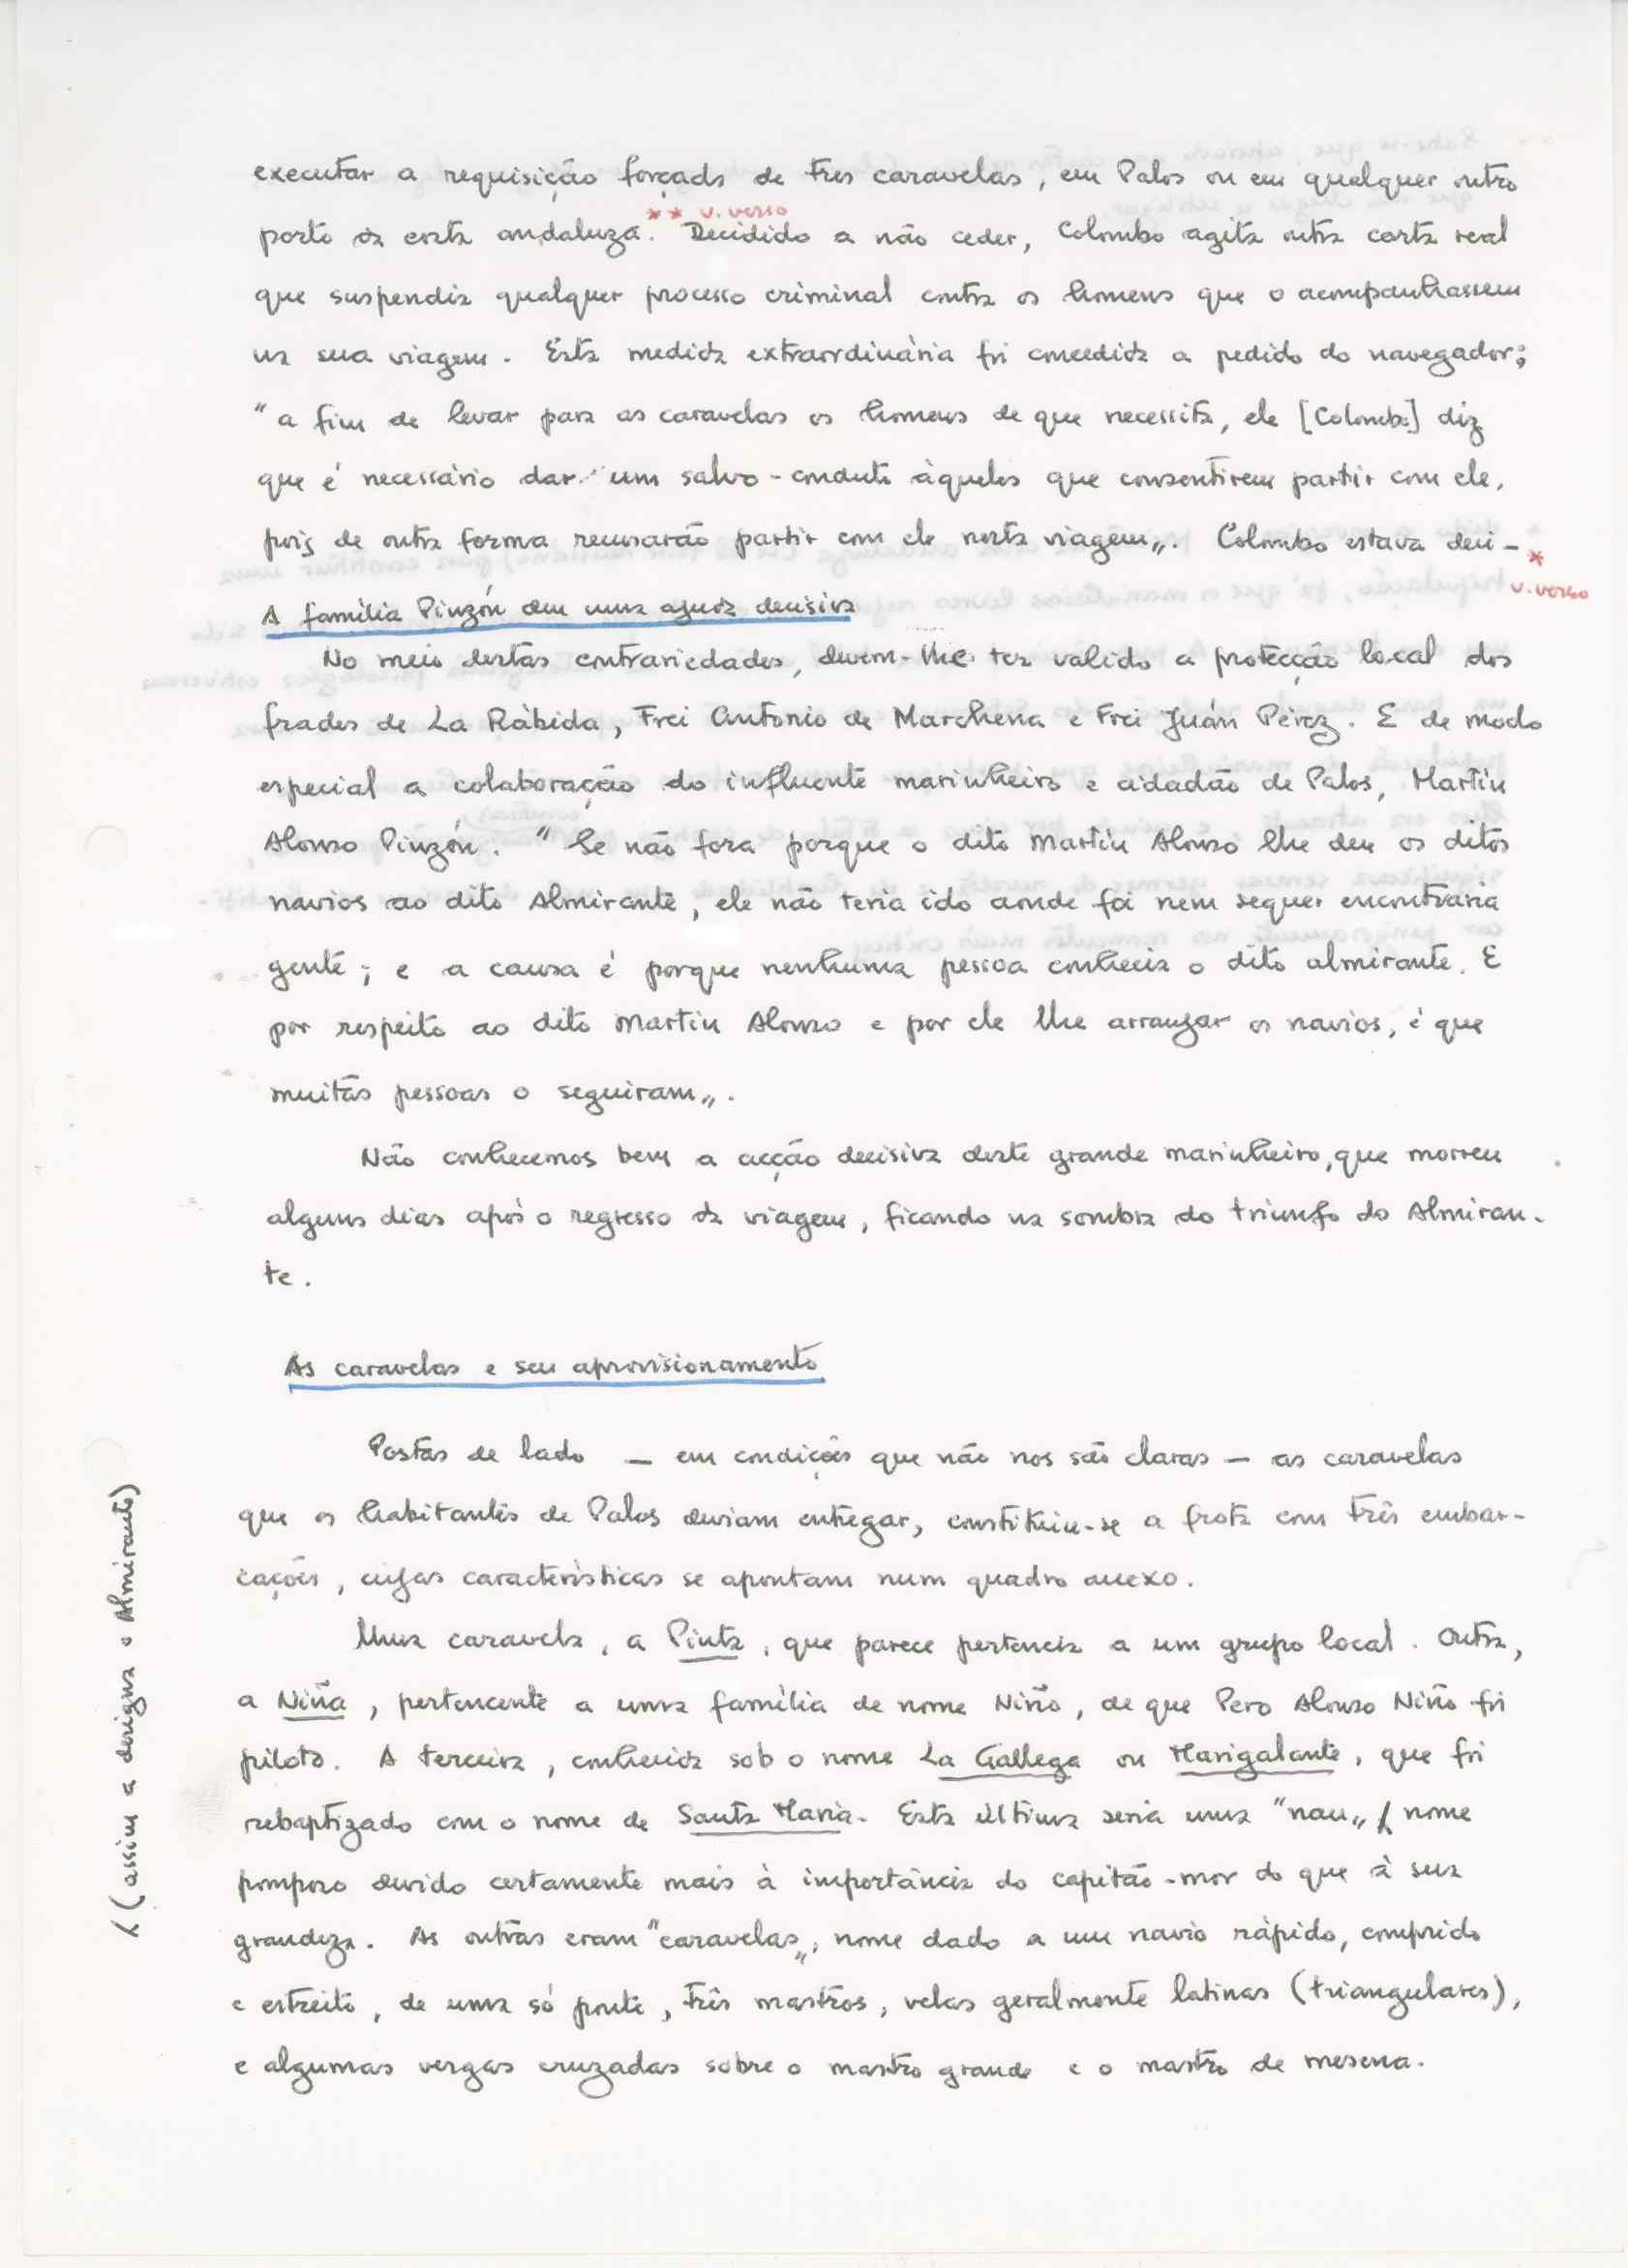 executar a requisição forçada de tres caravelas, em Palos ou em qualquer outro
** v. verso
porto da costa andaluza. Decidido a não ceder, Colombo agita outra carta real
que suspendia qualquer processo criminal contra os homens que o acompanhassem
na sua viagem. Esta medida extraordinária foi concedida a pedido do navegador;
"a fim de levar para as caravelas os homens de que necessita, ele [Colombo] diz
que é necessário dar um salvo-conduto àqueles que consentirem partir com ele,
pois de outra forma recusarão partir com ele nesta viagem„. Colombo estava deci- *
v. verso
A família Pinzón deu uma ajuda decisiva
No meio destas contrariedades, devem-lhe ter valido a protecção local dos
frades de La Rábida, Frei Antonio de Marchena e Frei Juán Pérez. E de modo
especial a colaboração do influente marinheiro e cidadão de Palos, Martin
Alonso Pinzón. "Se não fora porque o dito Martin Alonso lhe deu os ditos
navios ao dito Almirante, ele não teria ido aonde foi nem sequer encontraria
gente; e a causa é porque nenhuma pessoa conhecia o dito almirante. E
por respeito ao dito Martin Alonso e por ele lhe arranjar os navios, é que
muitas pessoas o seguiram„.
Não conhecemos bem a acção decisiva deste grande marinheiro, que morreu
alguns dias após o regresso da viagem, ficando na sombra do triunfo do Almiran-
te.
As caravelas e seu aprovisionamento
Postas de lado — em condições que não nos são claras — as caravelas
que os habitantes de Palos deviam entregar, constituiu-se a frota com três embar-
cações, cujas características se apontam num quadro anexo.
Uma caravela, a Pinta, que parece pertencia a um grupo local. Outra,
a Niña, pertencente a uma família de nome Niño, de que Pero Alonso Niño foi
piloto. A terceira, conhecida sob o nome La Gallega ou Marigalante, que foi
rebaptizado com o nome de Santa Maria. Esta última seria uma "nau„ nome
pomposo devido certamente mais à importância do capitão-mor do que à sua
grandeza. As outras eram "caravelas„, nome dado a um navio rápido, comprido
e estreito, de uma só ponte, três mastros, velas geralmente latinas (triangulares),
e algumas vergas cruzadas sobre o mastro grande e o mastro de mesena.
(assim a designa o Almirante)